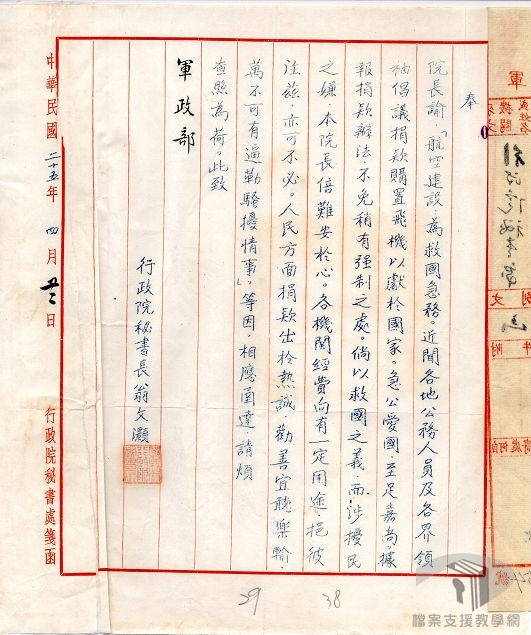 奉
院長諭「航空建設,為救國急務。近聞各地公務人員及各界領
袖倡議捐款購置飛機以獻於國家。急公愛國至足嘉尚。據
報捐款辦法不免稍有强制之處。倘以救國之義而涉擾民
之嫌本院長倍難安於心。各機關經費向有一定用途挹彼
注茲,亦可不必。人民方面捐款出於熱誠,勸善宜聽樂輸,
萬不可有逼勒騷擾情事」,等因,相應函達請煩
查照為荷。此致
軍政部
行政院秘書長翁文灝
中華民國二十五年四月廿二日
行政院秘書處箋函
軍
機關
文
別
件
附
29
38
檔案支援教學網